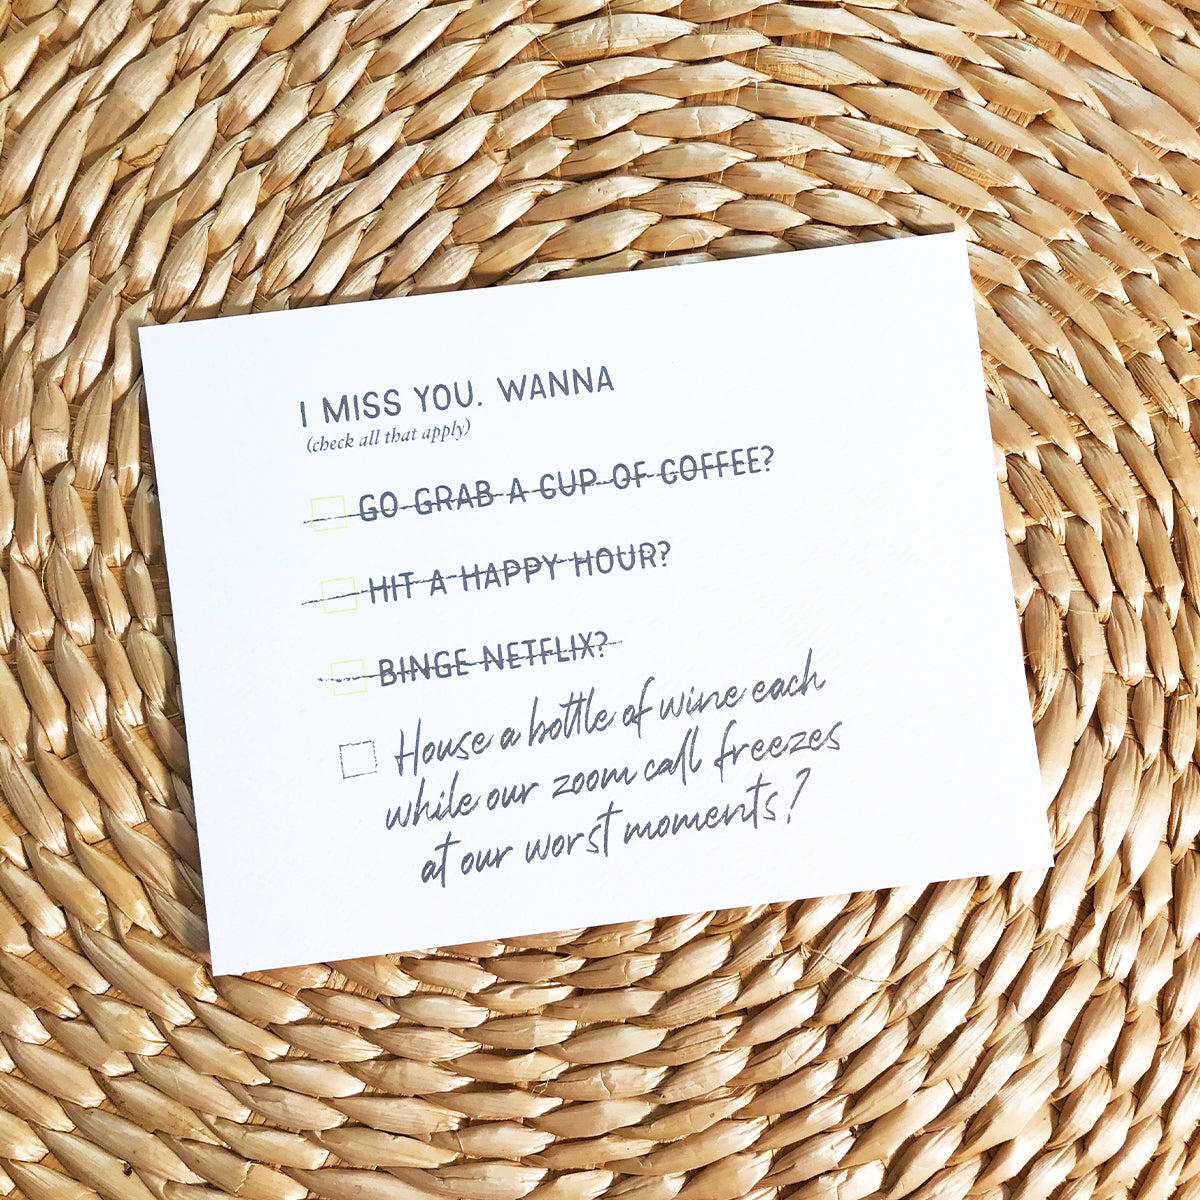 I MISS YOU. WANNA
(check all that apply)
GO GRAB A CUP OF COFFEE?
HIT A HAPPY HOUR?
BINGE NETFLIX?
House a bottle of wine each
while our zoom call freezes
at our worst moments?